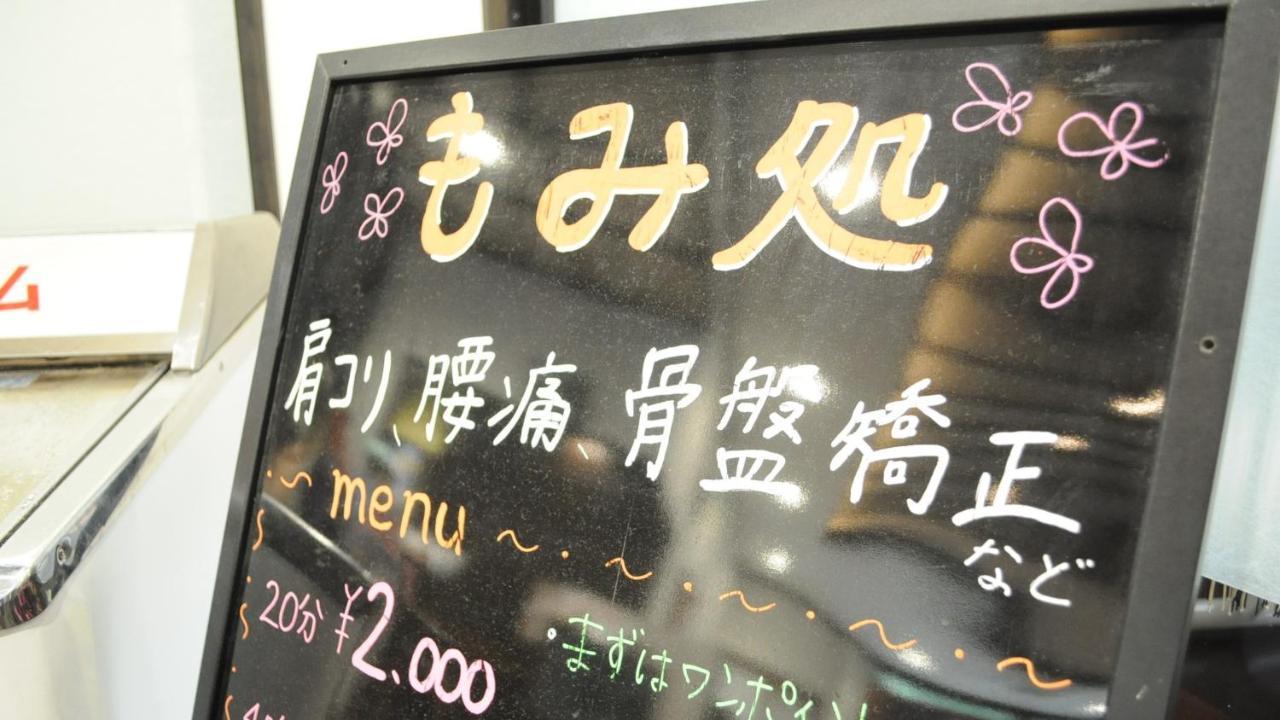 もみ処
肩コリ、腰痛、骨盤矯正
など
menu
20分 ¥2.000
まずはワンポイン
ム